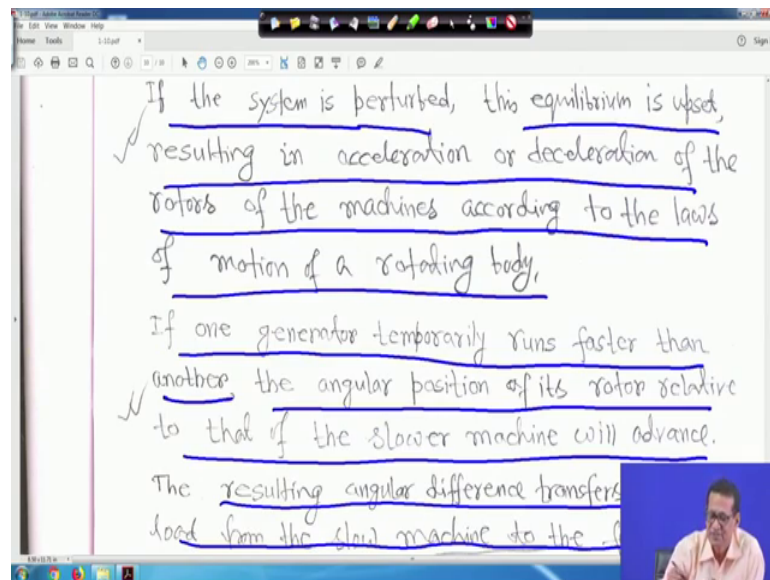 1-10.pdf - Adobe Acrobat Reader DC
File Edit View Window Help
Home Tools 1-10.pdf × Sign
If the system is perturbed, this equilibrium is upset,
resulting in acceleration or deceleration of the
rotors of the machines according to the laws
of motion of a rotating body.
If one generator temporarily runs faster than
another, the angular position of its rotor relative
to that of the slower machine will advance.
The resulting angular difference transfers
load from the slow machine to the